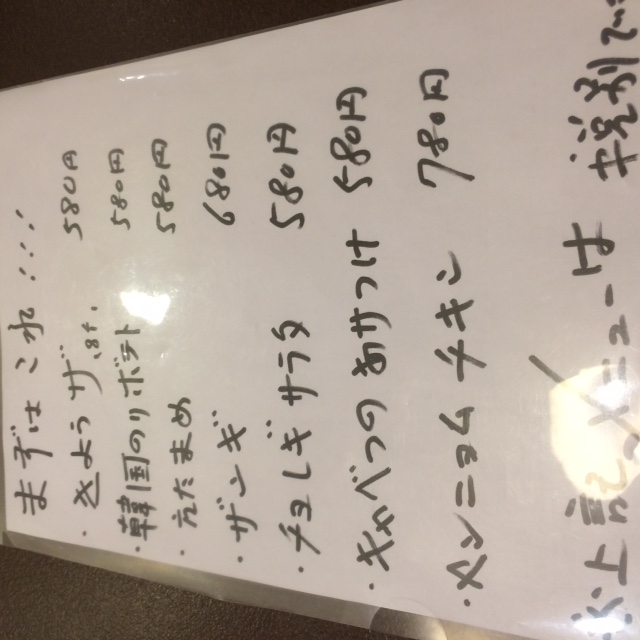 まずはこれ!!!!
・きょうザ 580円
・韓国のりポテト 580円
・えだまめ 580円
・ザンギ 680円
・チョレギサラダ 580円
・キャベつのあサつけ 580円
・ヤンニョムチキン 780円
上記メニューは 税別で